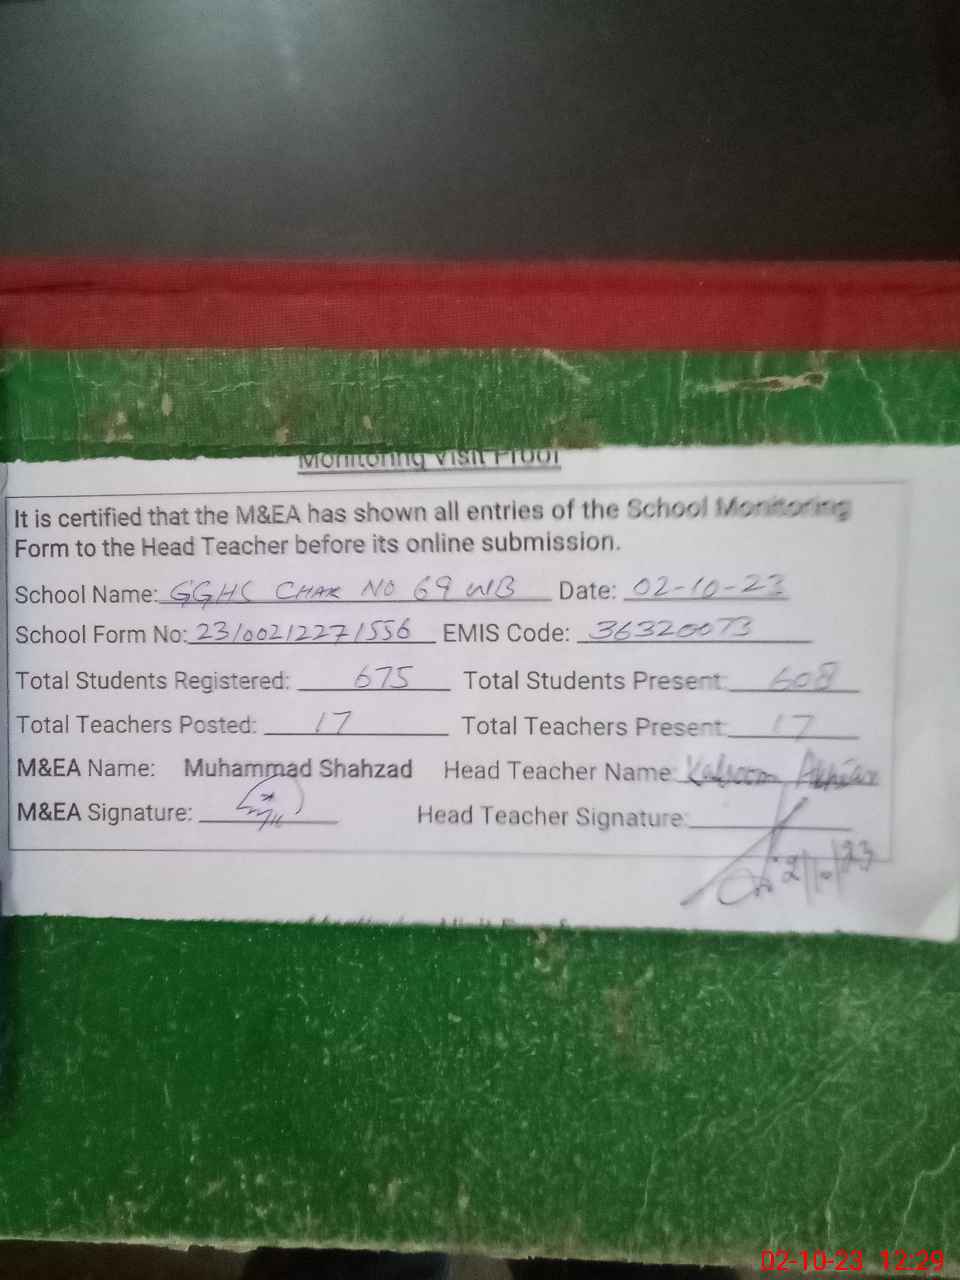 Monitoring Visit Proof
It is certified that the M&EA has shown all entries of the School Monitoring
Form to the Head Teacher before its online submission.
School Name: GGHS CHAK NO 69 WB Date: 02-10-23
School Form No: 23/002/2271556 EMIS Code: 36320073
Total Students Registered: 675 Total Students Present: 608
Total Teachers Posted: 17 Total Teachers Present: 17
M&EA Name: Muhammad Shahzad Head Teacher Name: Kalsoom Akhtar
M&EA Signature: Head Teacher Signature:
2/10/23
02-10-23 12:29